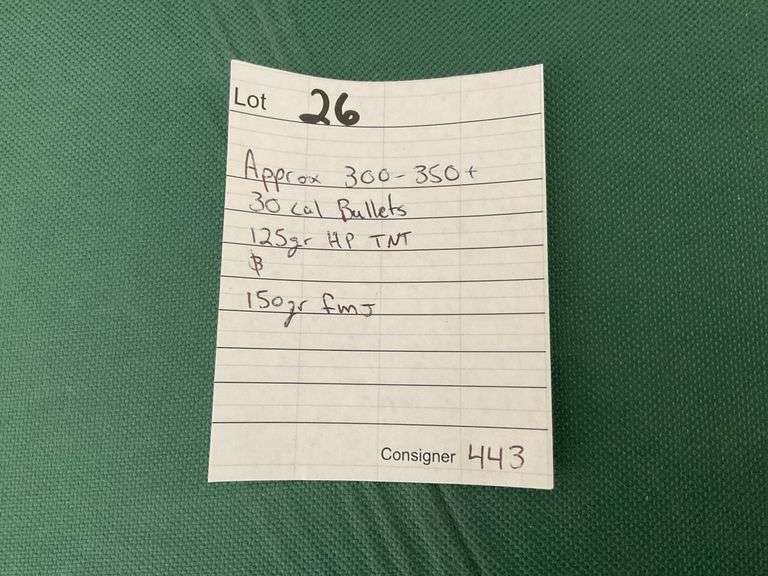 Lot 26
Approx 300-350+
30 cal Bullets
125gr HP TNT
150gr fmJ
Consigner 443